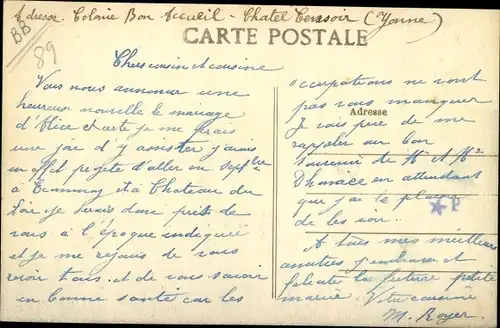 Adresse Colonie Bon Accueil - Chatel Censoir (Yonne)
BB
89
CARTE POSTALE
Chers cousin et cousine
Vous nous annoncer une
heureuse nouvelle le mariage
d'Alice et certe je me ferais
une joie d'y assister j'avais
en effet projeté d'aller en Septbre
à et à Chateau du
Loir. je serais donc près de
vous à l'époque indiquée
et je me rejouis de vous
revoir tous. et de vous savoir
en bonne santé car les
occupations ne vont
pas vous manquer
Adresse
Je vous prie de me
rappeler au bon
souvenir de Mr et Mme
en attendant
que j'ai le plaisir
de les voir.
P
A tous mes meilleurs
amitiés j'embrasse et
félicite la future petite
mariée. Votre cousine
M. Royer